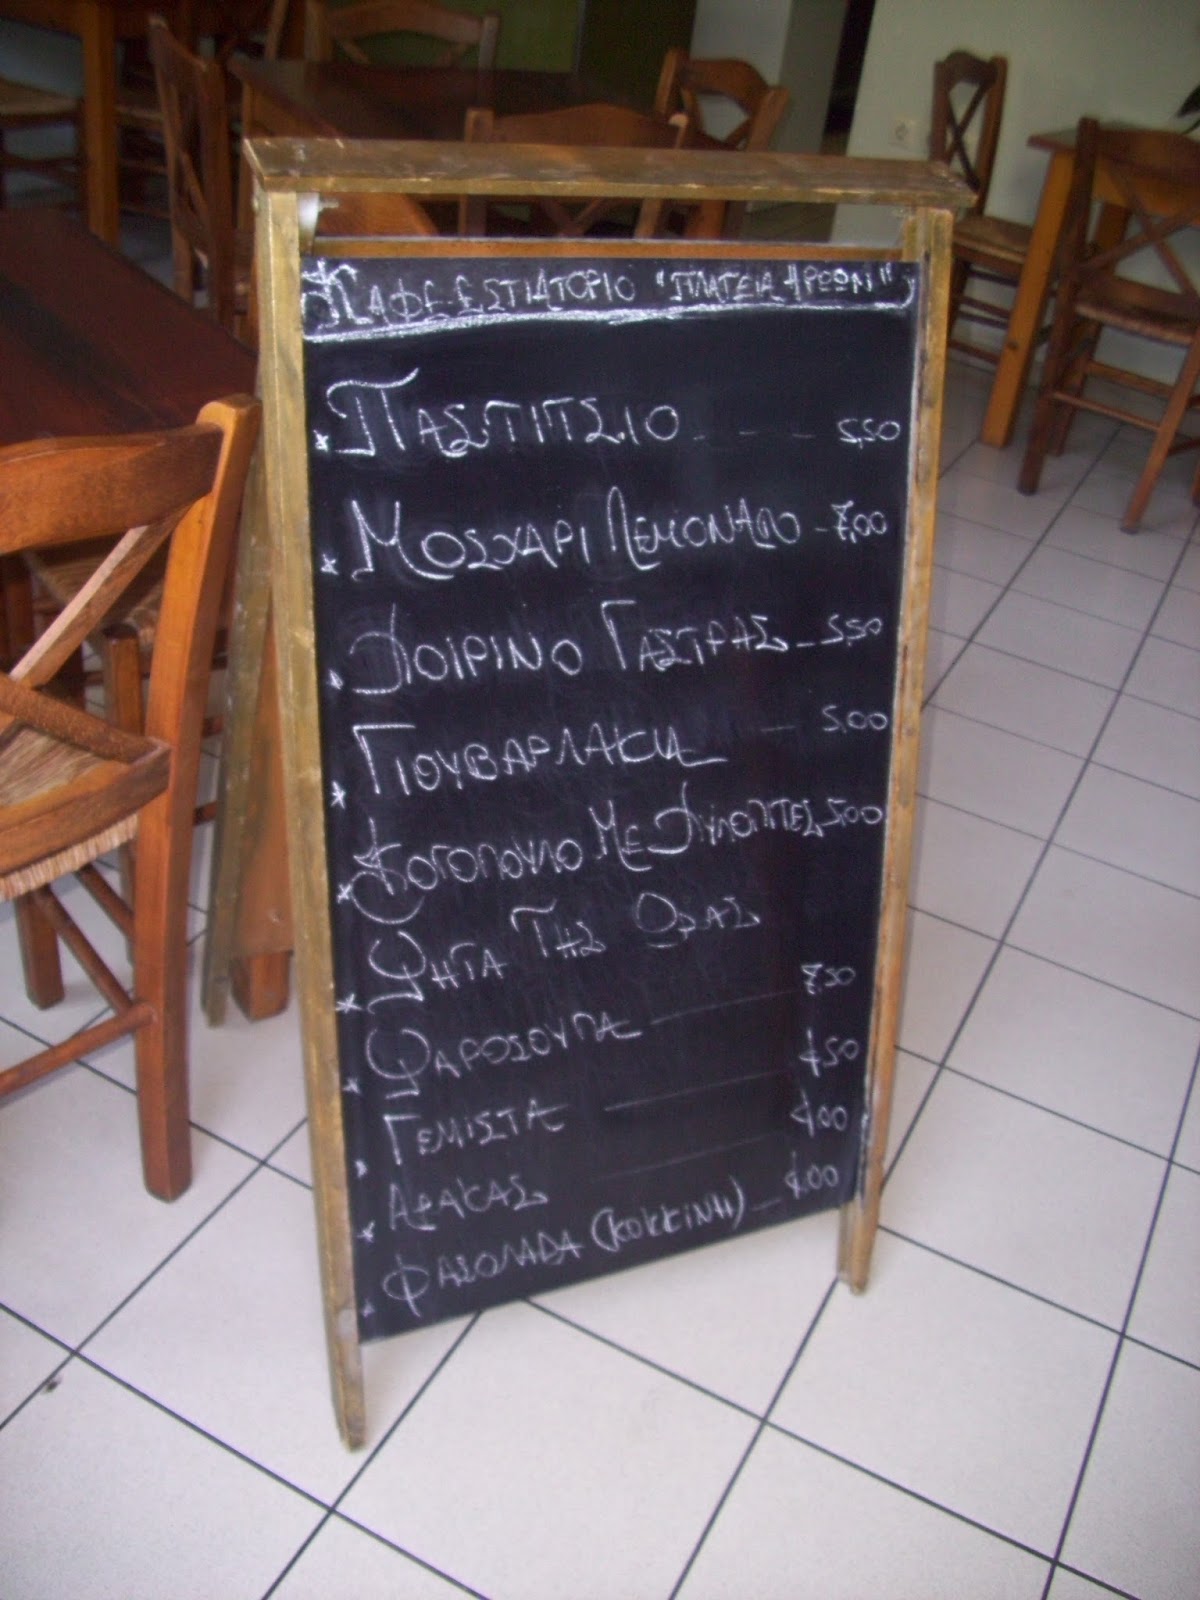 ΚΑΦΕΕΣΤΙΑΤΟΡΙΟ "ΠΛΑΤΕΙΑ ΗΡΩΩΝ"
* ΠΑΣΤΙΤΣΙΟ - - - 5,50
* ΜΟΣΧΑΡΙ ΛΕΜΟΝΑΤΟ - 7,00
* ΧΟΙΡΙΝΟ ΓΑΣΤΡΑΣ - 5,50
* ΓΙΟΥΒΑΡΛΑΚΙΑ - 5,00
* ΚΟΤΟΠΟΥΛΟ ΜΕ ΧΥΛΟΠΙΤΕΣ 5,00
* ΨΗΤΑ ΤΗΣ ΩΡΑΣ
* ΨΑΡΟΣΟΥΠΑ - 7,50
* ΓΕΜΙΣΤΑ - 4,50
* ΑΡΑΚΑΣ - 4,00
* ΦΑΣΟΛΑΔΑ (ΚΟΚΚΙΝΗ) - 4,00